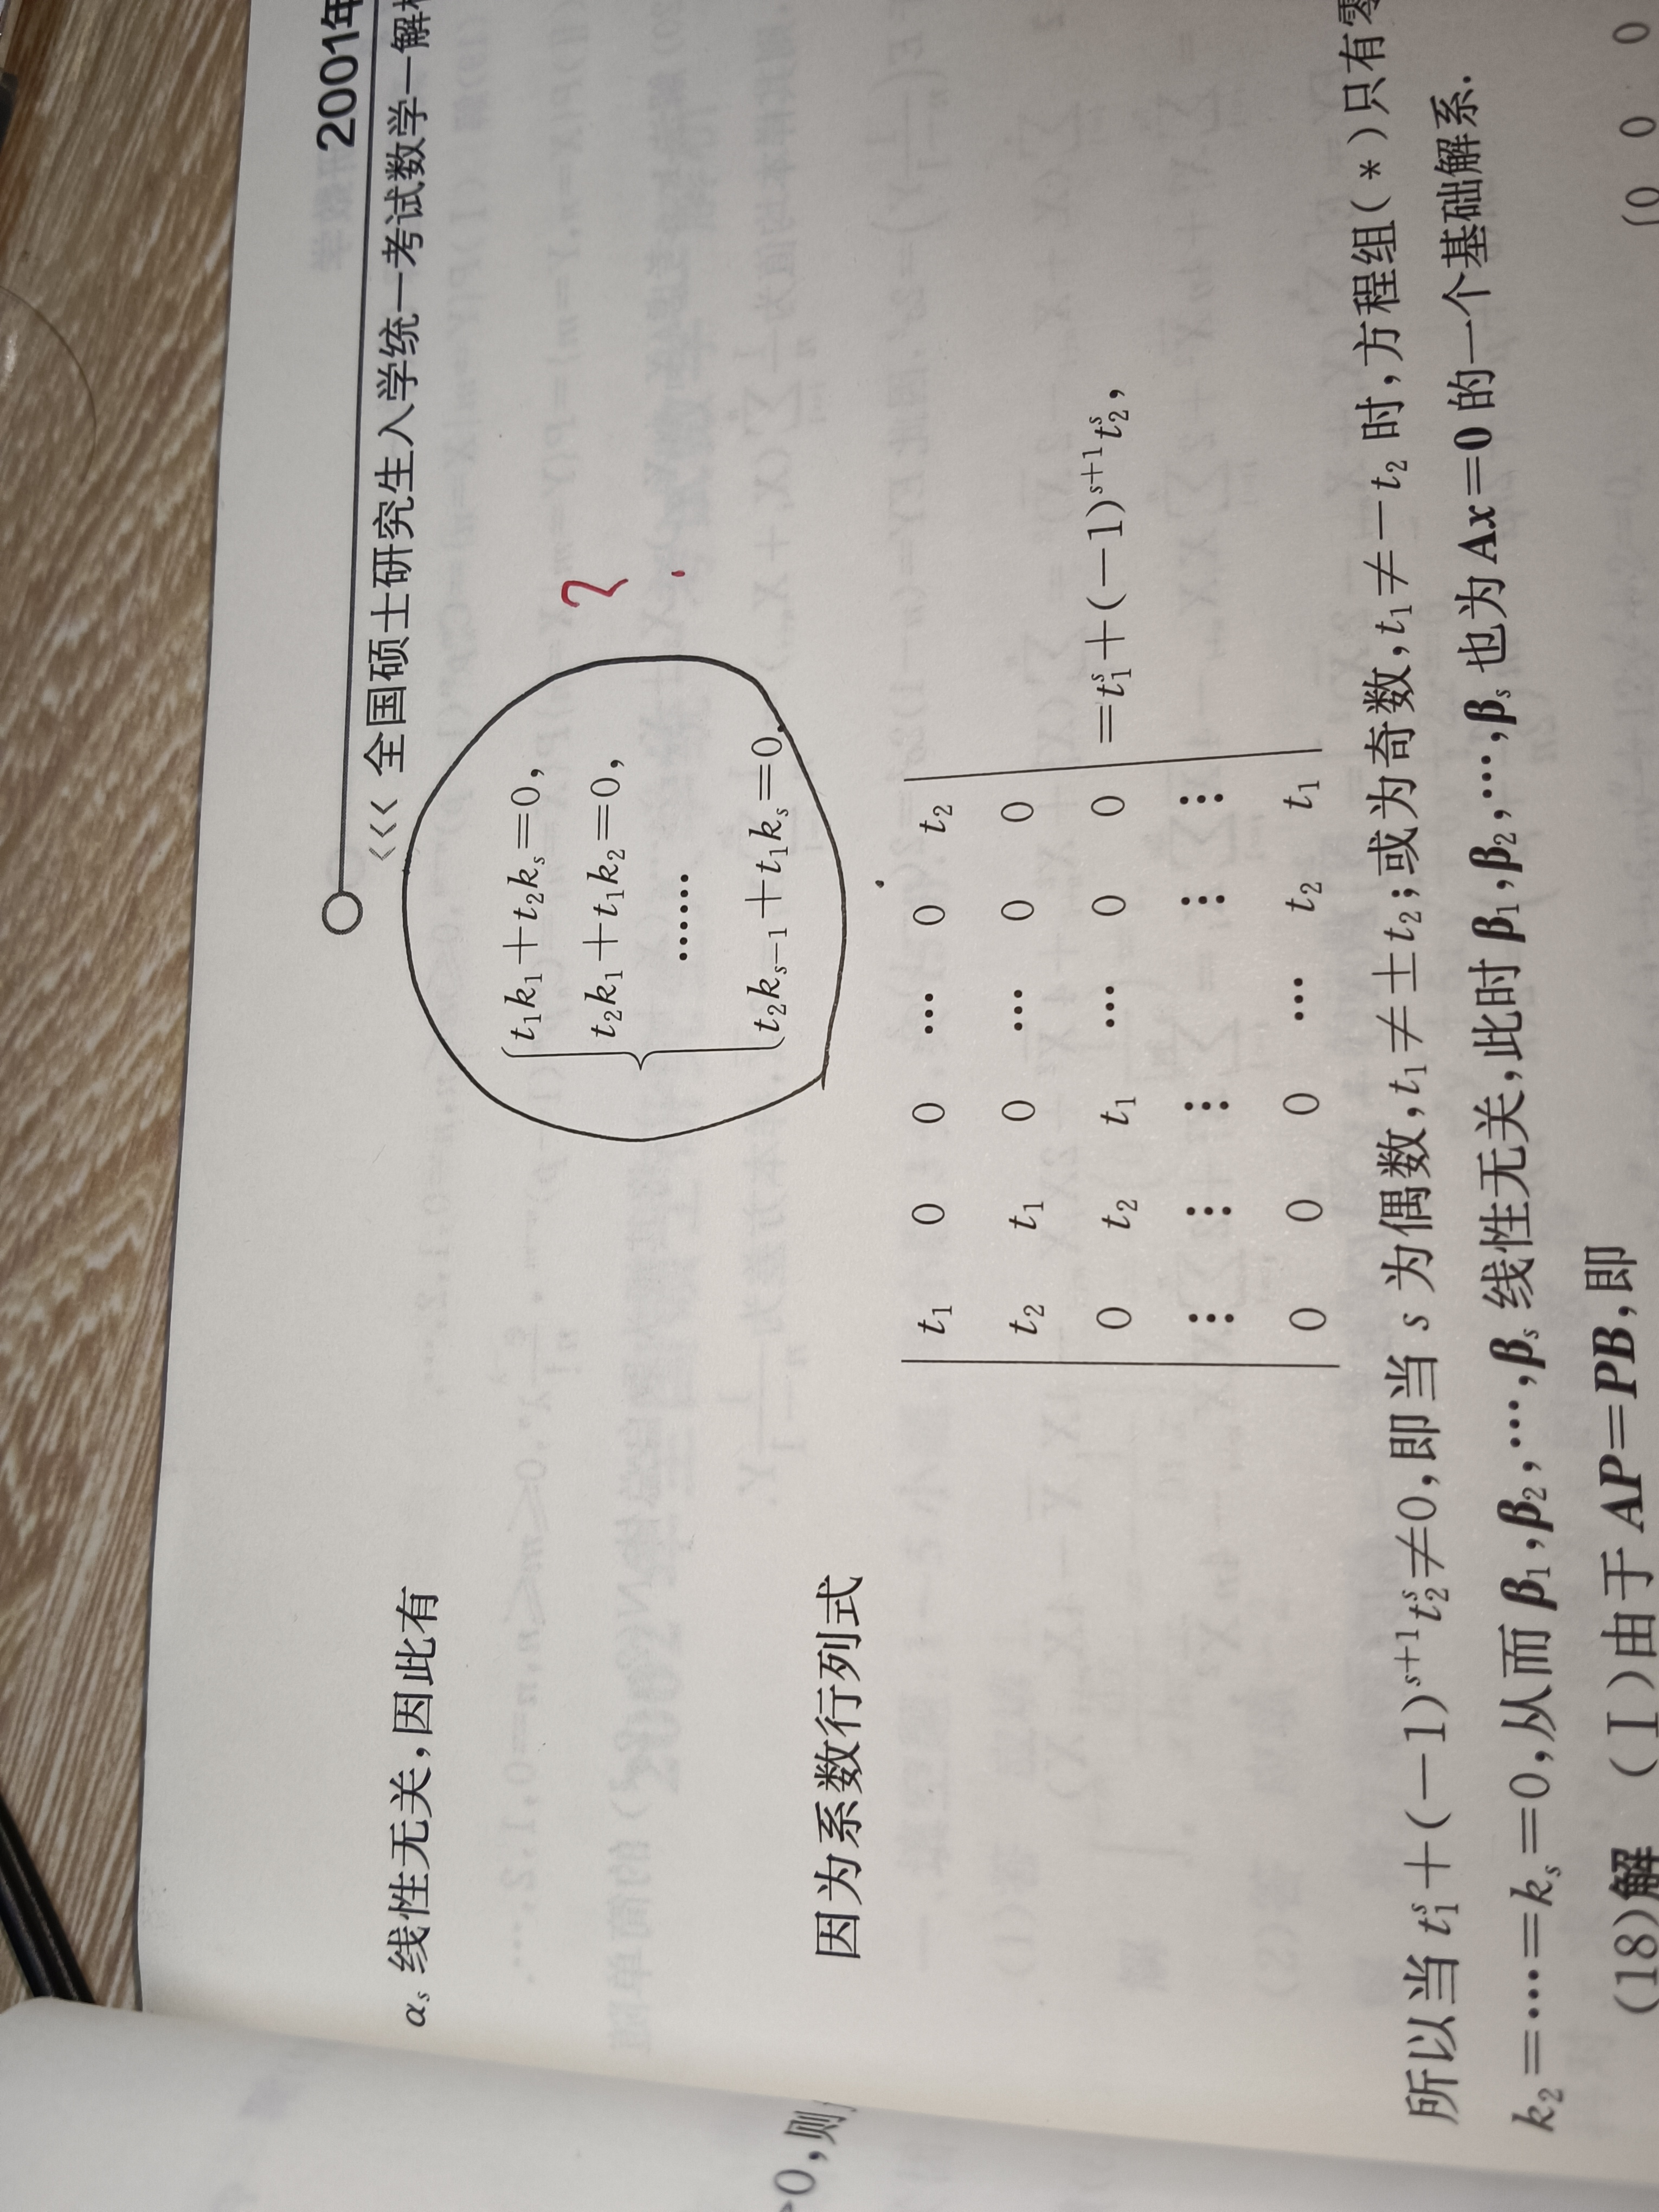 2001年
<<< 全国硕士研究生入学统一考试数学一解析
α_s 线性无关,因此有
t₁k₁+t₂k_s=0,
t₂k₁+t₁k₂=0,
……
t₂k_{s-1}+t₁k_s=0.
?
因为系数行列式
t₁ 0 0 ⋯ 0 t₂
t₂ t₁ 0 ⋯ 0 0
0 t₂ t₁ ⋯ 0 0
⋮ ⋮ ⋮ ⋮ ⋮
0 0 0 ⋯ t₂ t₁
=t₁^s+(-1)^{s+1}t₂^s,
所以当 t₁^s+(-1)^{s+1}t₂^s≠0,即当 s 为偶数,t₁≠±t₂;或为奇数,t₁≠-t₂ 时,方程组(*)只有零
k₂=⋯=k_s=0,从而 β₁,β₂,⋯,β_s 线性无关,此时 β₁,β₂,⋯,β_s 也为 Ax=0 的一个基础解系.
(18)解 (Ⅰ)由于 AP=PB,即
0 0 0
0,则